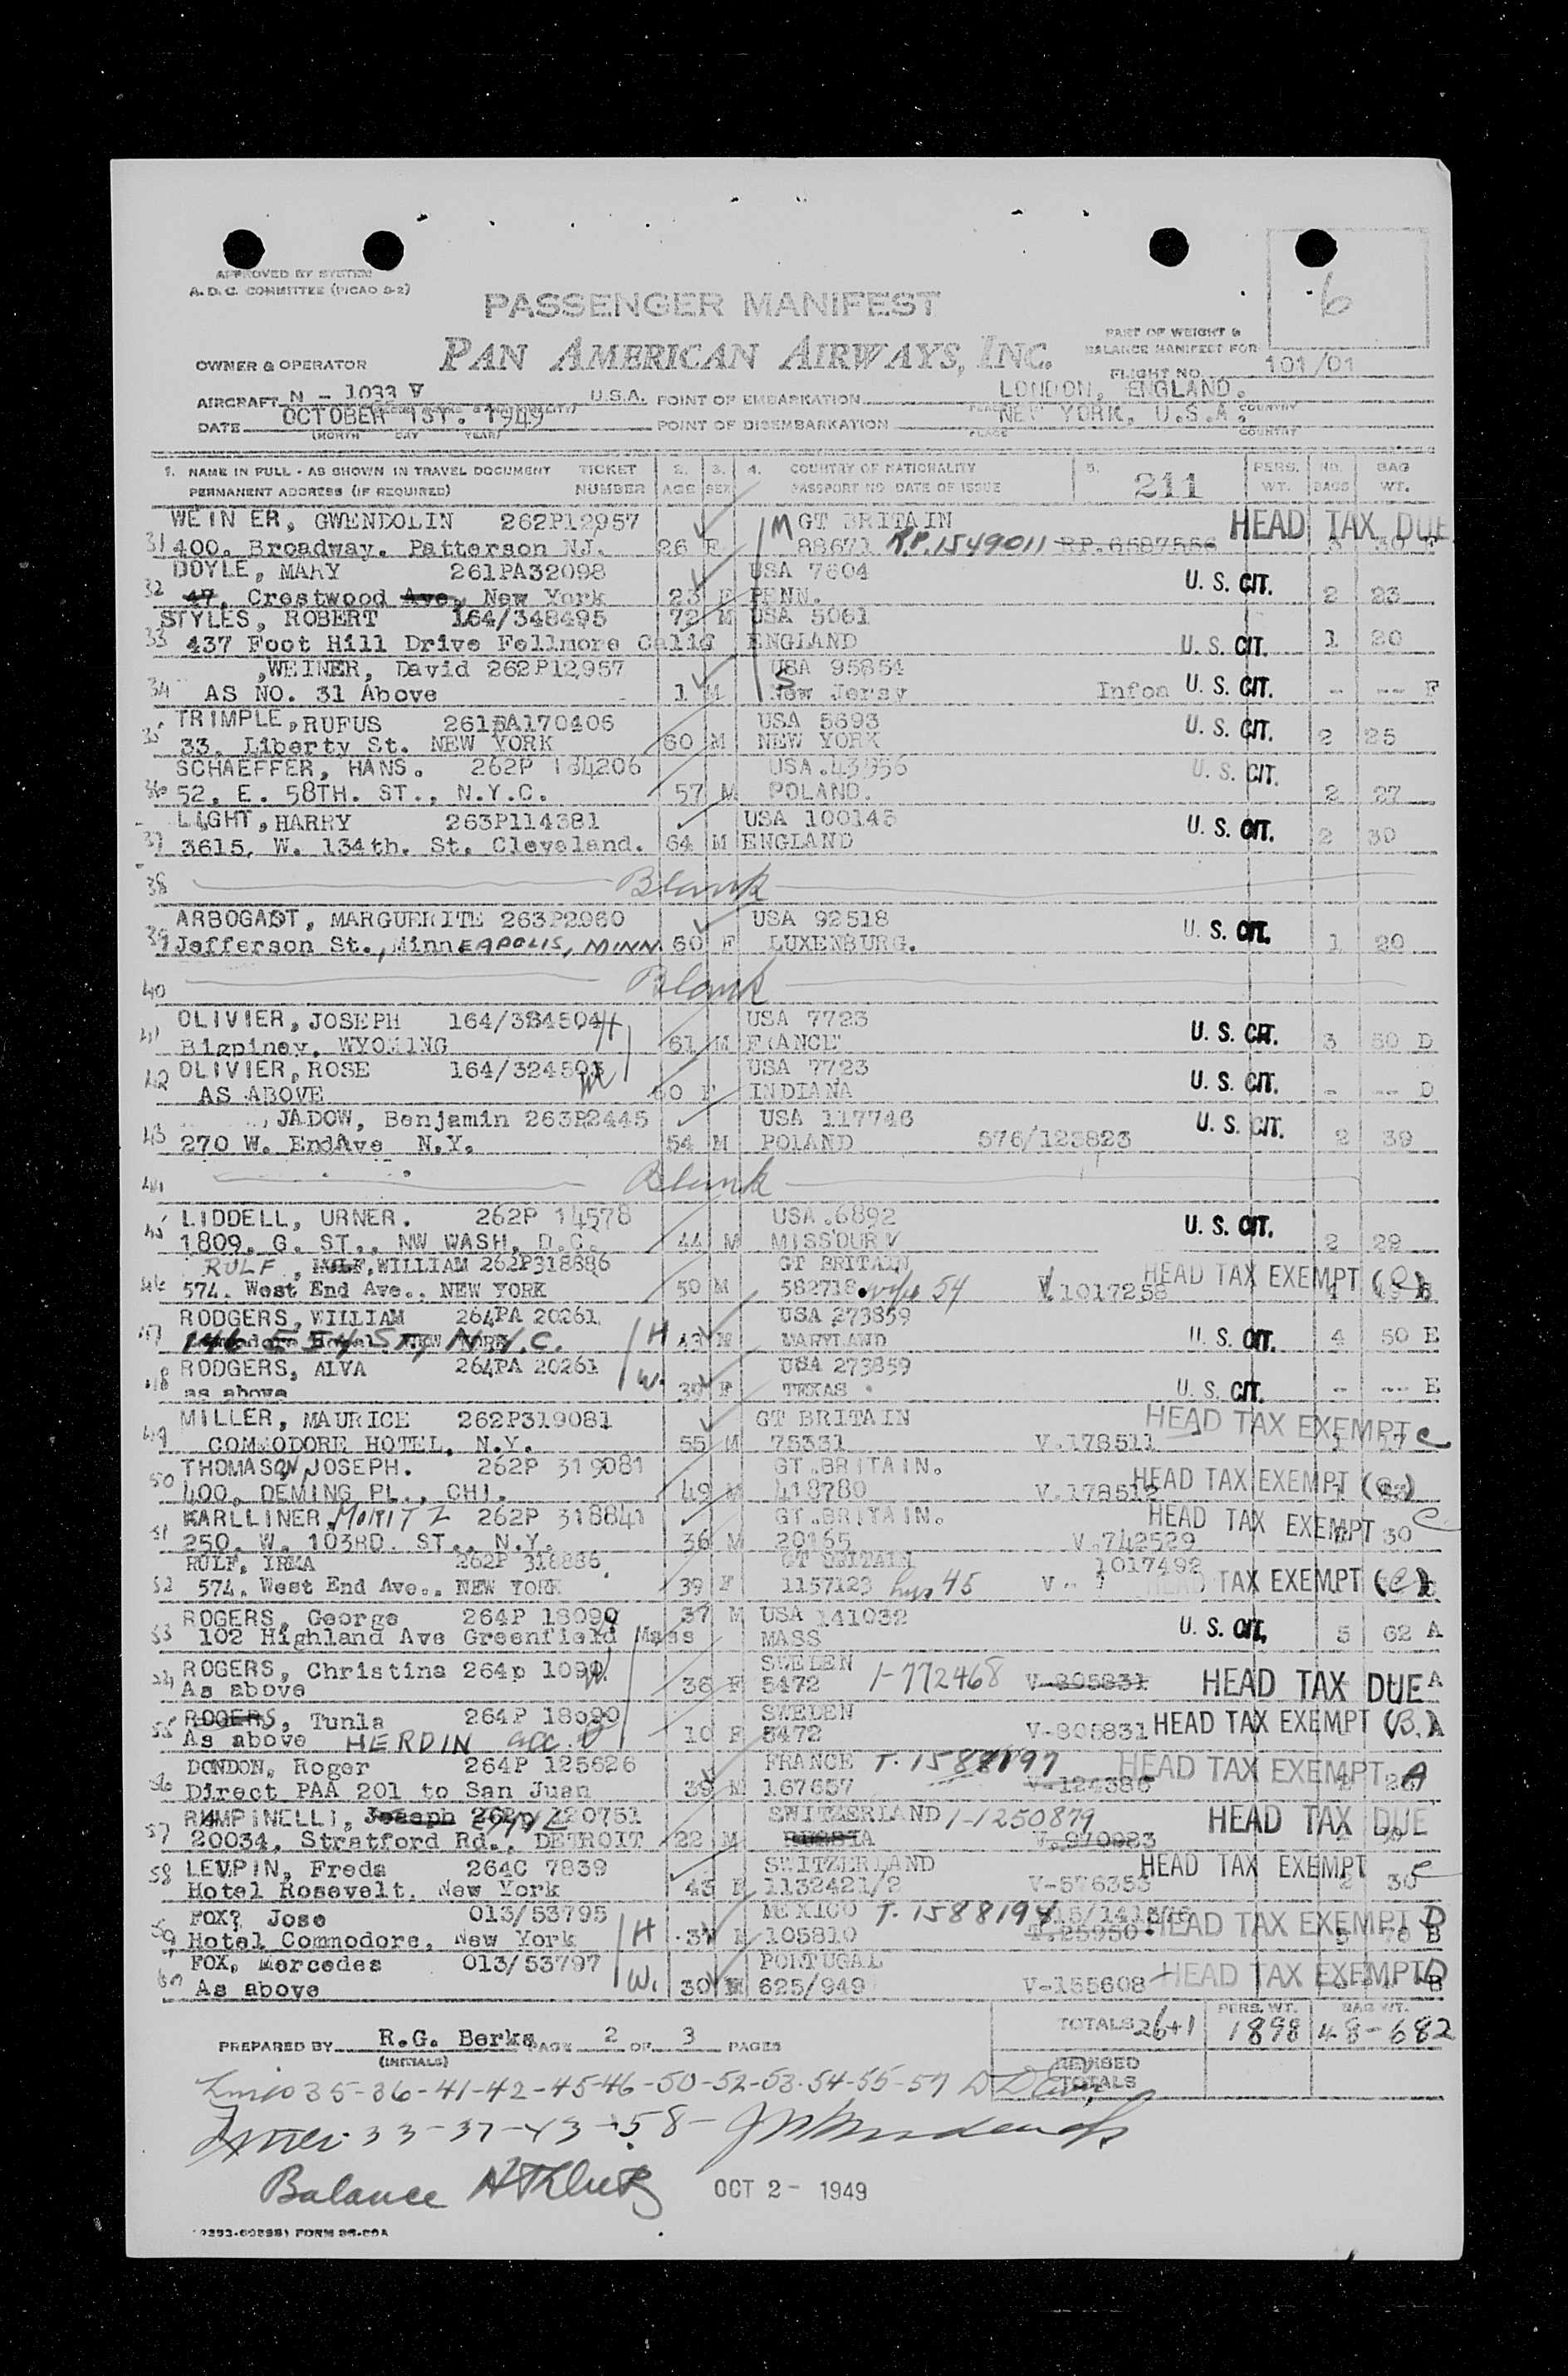 APPROVED BY SYSTEM
A.D.C. COMMITTEE (PICAO S-2)
6
PASSENGER MANIFEST
PART OF WEIGHT &
BALANCE MANIFEST FOR
OWNER & OPERATOR PAN AMERICAN AIRWAYS, INC. FLIGHT NO. 101/01
AIRCRAFT N - 1033 V U.S.A. POINT OF EMBARKATION LONDON, ENGLAND.
DATE OCTOBER 1ST. 1949 POINT OF DISEMBARKATION NEW YORK, U.S.A.
(MONTH DAY YEAR) PLACE COUNTRY
1. NAME IN FULL - AS SHOWN IN TRAVEL DOCUMENT TICKET 2. 3. 4. COUNTRY OF NATIONALITY 5. 211 PERS. NO. BAG
PERMANENT ADDRESS (IF REQUIRED) NUMBER AGE SEX PASSPORT NO DATE OF ISSUE WT. BAGS WT.
WEINER, GWENDOLIN 262P12957 M GT BRITAIN HEAD TAX DUE
31 400. Broadway. Patterson NJ. 26 F 88671 R.P. 1549011 RP.6587556 3 50 F
DOYLE, MARY 261PA32098 USA 7604 U. S. CIT.
32 47. Crestwood Ave, New York 23 F PENN. 2 23
STYLES, ROBERT 164/348495 72 M USA 5061
33 437 Foot Hill Drive Fellmore Calif ENGLAND U. S. CIT. 1 20
,WEINER, David 262P12957 USA 95854
34 AS NO. 31 Above 1 M S New Jersy Infoa U. S. CIT. - -- F
TRIMPLE, RUFUS 261PA170406 USA 5693 U. S. CIT.
35 33. Liberty St. NEW YORK 60 M NEW YORK 2 25
SCHAEFFER, HANS. 262P 184206 USA.43956 U. S. CIT.
36 52. E. 58TH. ST., N.Y.C. 57 M POLAND. 2 27
LIGHT, HARRY 263P114381 USA 100145 U. S. CIT.
37 3615. W. 134th. St. Cleveland. 64 M ENGLAND 2 30
38 Blank
ARBOGAST, MARGUERITE 263P2960 USA 92518 U. S. CIT.
39 Jefferson St., MinnEAPOLIS, MINN 60 F LUXENBURG. 1 20
40 Blank
OLIVIER, JOSEPH 164/324504 H USA 7723 U. S. CIT.
41 Bigpiney. WYOMING 61 M FRANCE 3 50 D
OLIVIER, ROSE 164/324503 W USA 7723 U. S. CIT.
42 AS ABOVE 60 F INDIANA - -- D
JADOW, Benjamin 263P2445 USA 117746 U. S. CIT.
43 270 W. EndAve N.Y. 54 M POLAND 576/123823 2 39
44 Blank
LIDDELL, URNER. 262P 14578 USA.6892 U. S. CIT.
45 1809. G. ST., NW WASH. D.C. 44 M MISSOURI 2 29
RULF, WILLIAM 262P318886 GT BRITAIN HEAD TAX EXEMPT (C)
46 574. West End Ave., NEW YORK 50 M 582718 wife 54 V.1017258
RODGERS, WILLIAM 264PA 20261 USA 273859
47 146 E 54 ST, N.Y.C. H 43 M MARYLAND U. S. CIT. 4 50 E
RODGERS, ALVA 264PA 20261 USA 273859
48 as above W. 39 F TEXAS U. S. CIT. - -- E
MILLER, MAURICE 262P319081 GT BRITAIN HEAD TAX EXEMPT C
49 COMMODORE HOTEL, N.Y. 55 M 75331 V.178511 1 17
THOMASON, JOSEPH. 262P 319081 GT.BRITAIN. HEAD TAX EXEMPT (C)
50 400. DEMING PL., CHI. 49 M 418780 V.178512
KARLLINER, MORITZ 262P 318841 GT.BRITAIN. HEAD TAX EXEMPT C
51 250. W. 103RD. ST., N.Y. 36 M 20165 V.742529 30
RULF, IRMA 262P 318886 GT BRITAIN 1017492
52 574. West End Ave., NEW YORK 39 F 1157123 hus 45 V. HEAD TAX EXEMPT (C)
ROGERS, George 264P 18090 37 M USA 141032
53 102 Highland Ave Greenfield Mass MASS U. S. CIT. 5 62 A
ROGERS, Christina 264p 1090 W SWEDEN
54 As above 36 F 5472 1-772468 V-805831 HEAD TAX DUE A
ROGERS, Tunla 264P 18090 SWEDEN
55 As above HERDIN acc. 10 F 5472 V-805831 HEAD TAX EXEMPT (B.) A
DONDON, Roger 264P 125626 FRANCE T. 1588197 HEAD TAX EXEMPT A
56 Direct PAA 201 to San Juan 39 M 167657 V-124386
RAMPINELLI, Joseph 262p 120751 SWITZERLAND 1-1250879 HEAD TAX DUE
57 20034. Stratford Rd., DETROIT 22 M RUSSIA V.970983
LEUPIN, Freda 264C 7839 SWITZERLAND HEAD TAX EXEMPT C
58 Hotel Rosevelt, New York 43 F 1132421/2 V-576353 2 30
FOX, Jose 013/53795 MEXICO T. 1588194
59 Hotel Commodore, New York H 37 M 105810 T.25950 HEAD TAX EXEMPT D 5 70 B
FOX, Mercedes 013/53797 PORTUGAL
60 As above W. 30 F 625/949 V-155608 HEAD TAX EXEMPT D B
TOTALS 26+1 PERS. WT. 1898 48 - BAG WT. 682
PREPARED BY R.G. Berks PAGE 2 OF 3 PAGES
(INITIALS)
REVISED
TOTALS
35-36-41-42-45-46-50-52-53-54-55-57
33-37-43-58-
Balance
OCT 2 - 1949